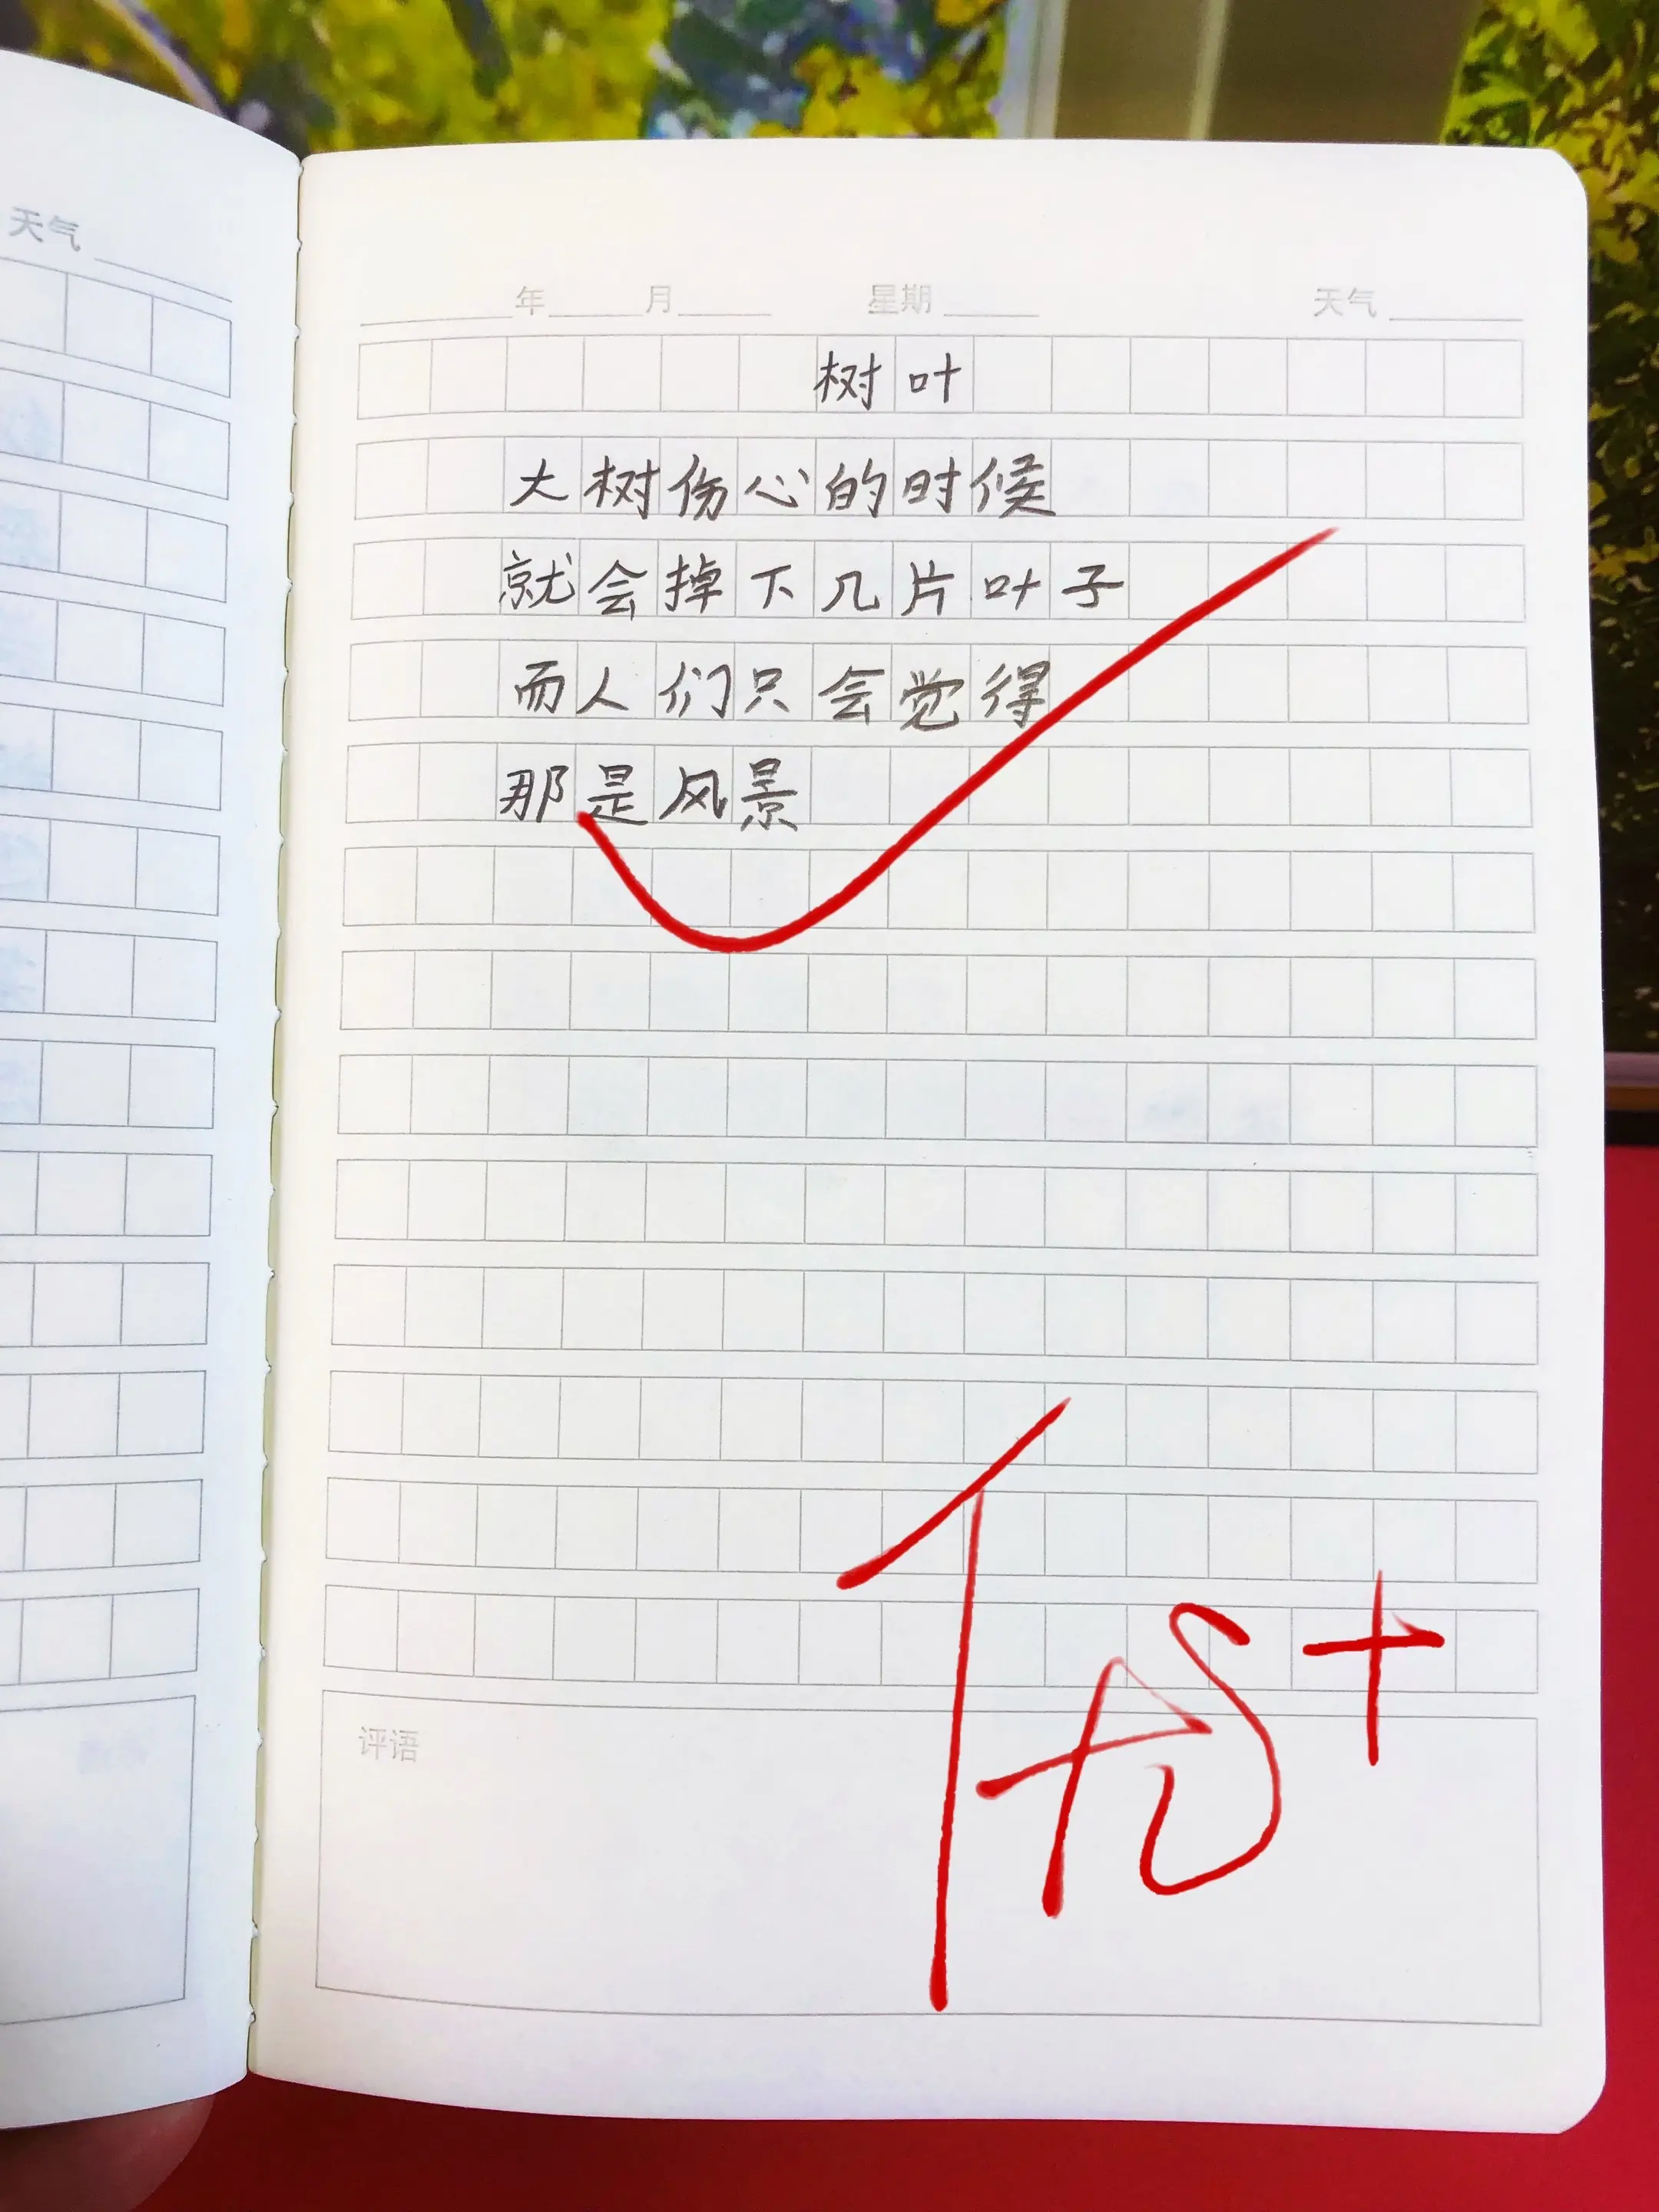 天气
年 月 星期 天气
树叶
大树伤心的时候
就会掉下几片叶子
而人们只会觉得
那是风景
评语